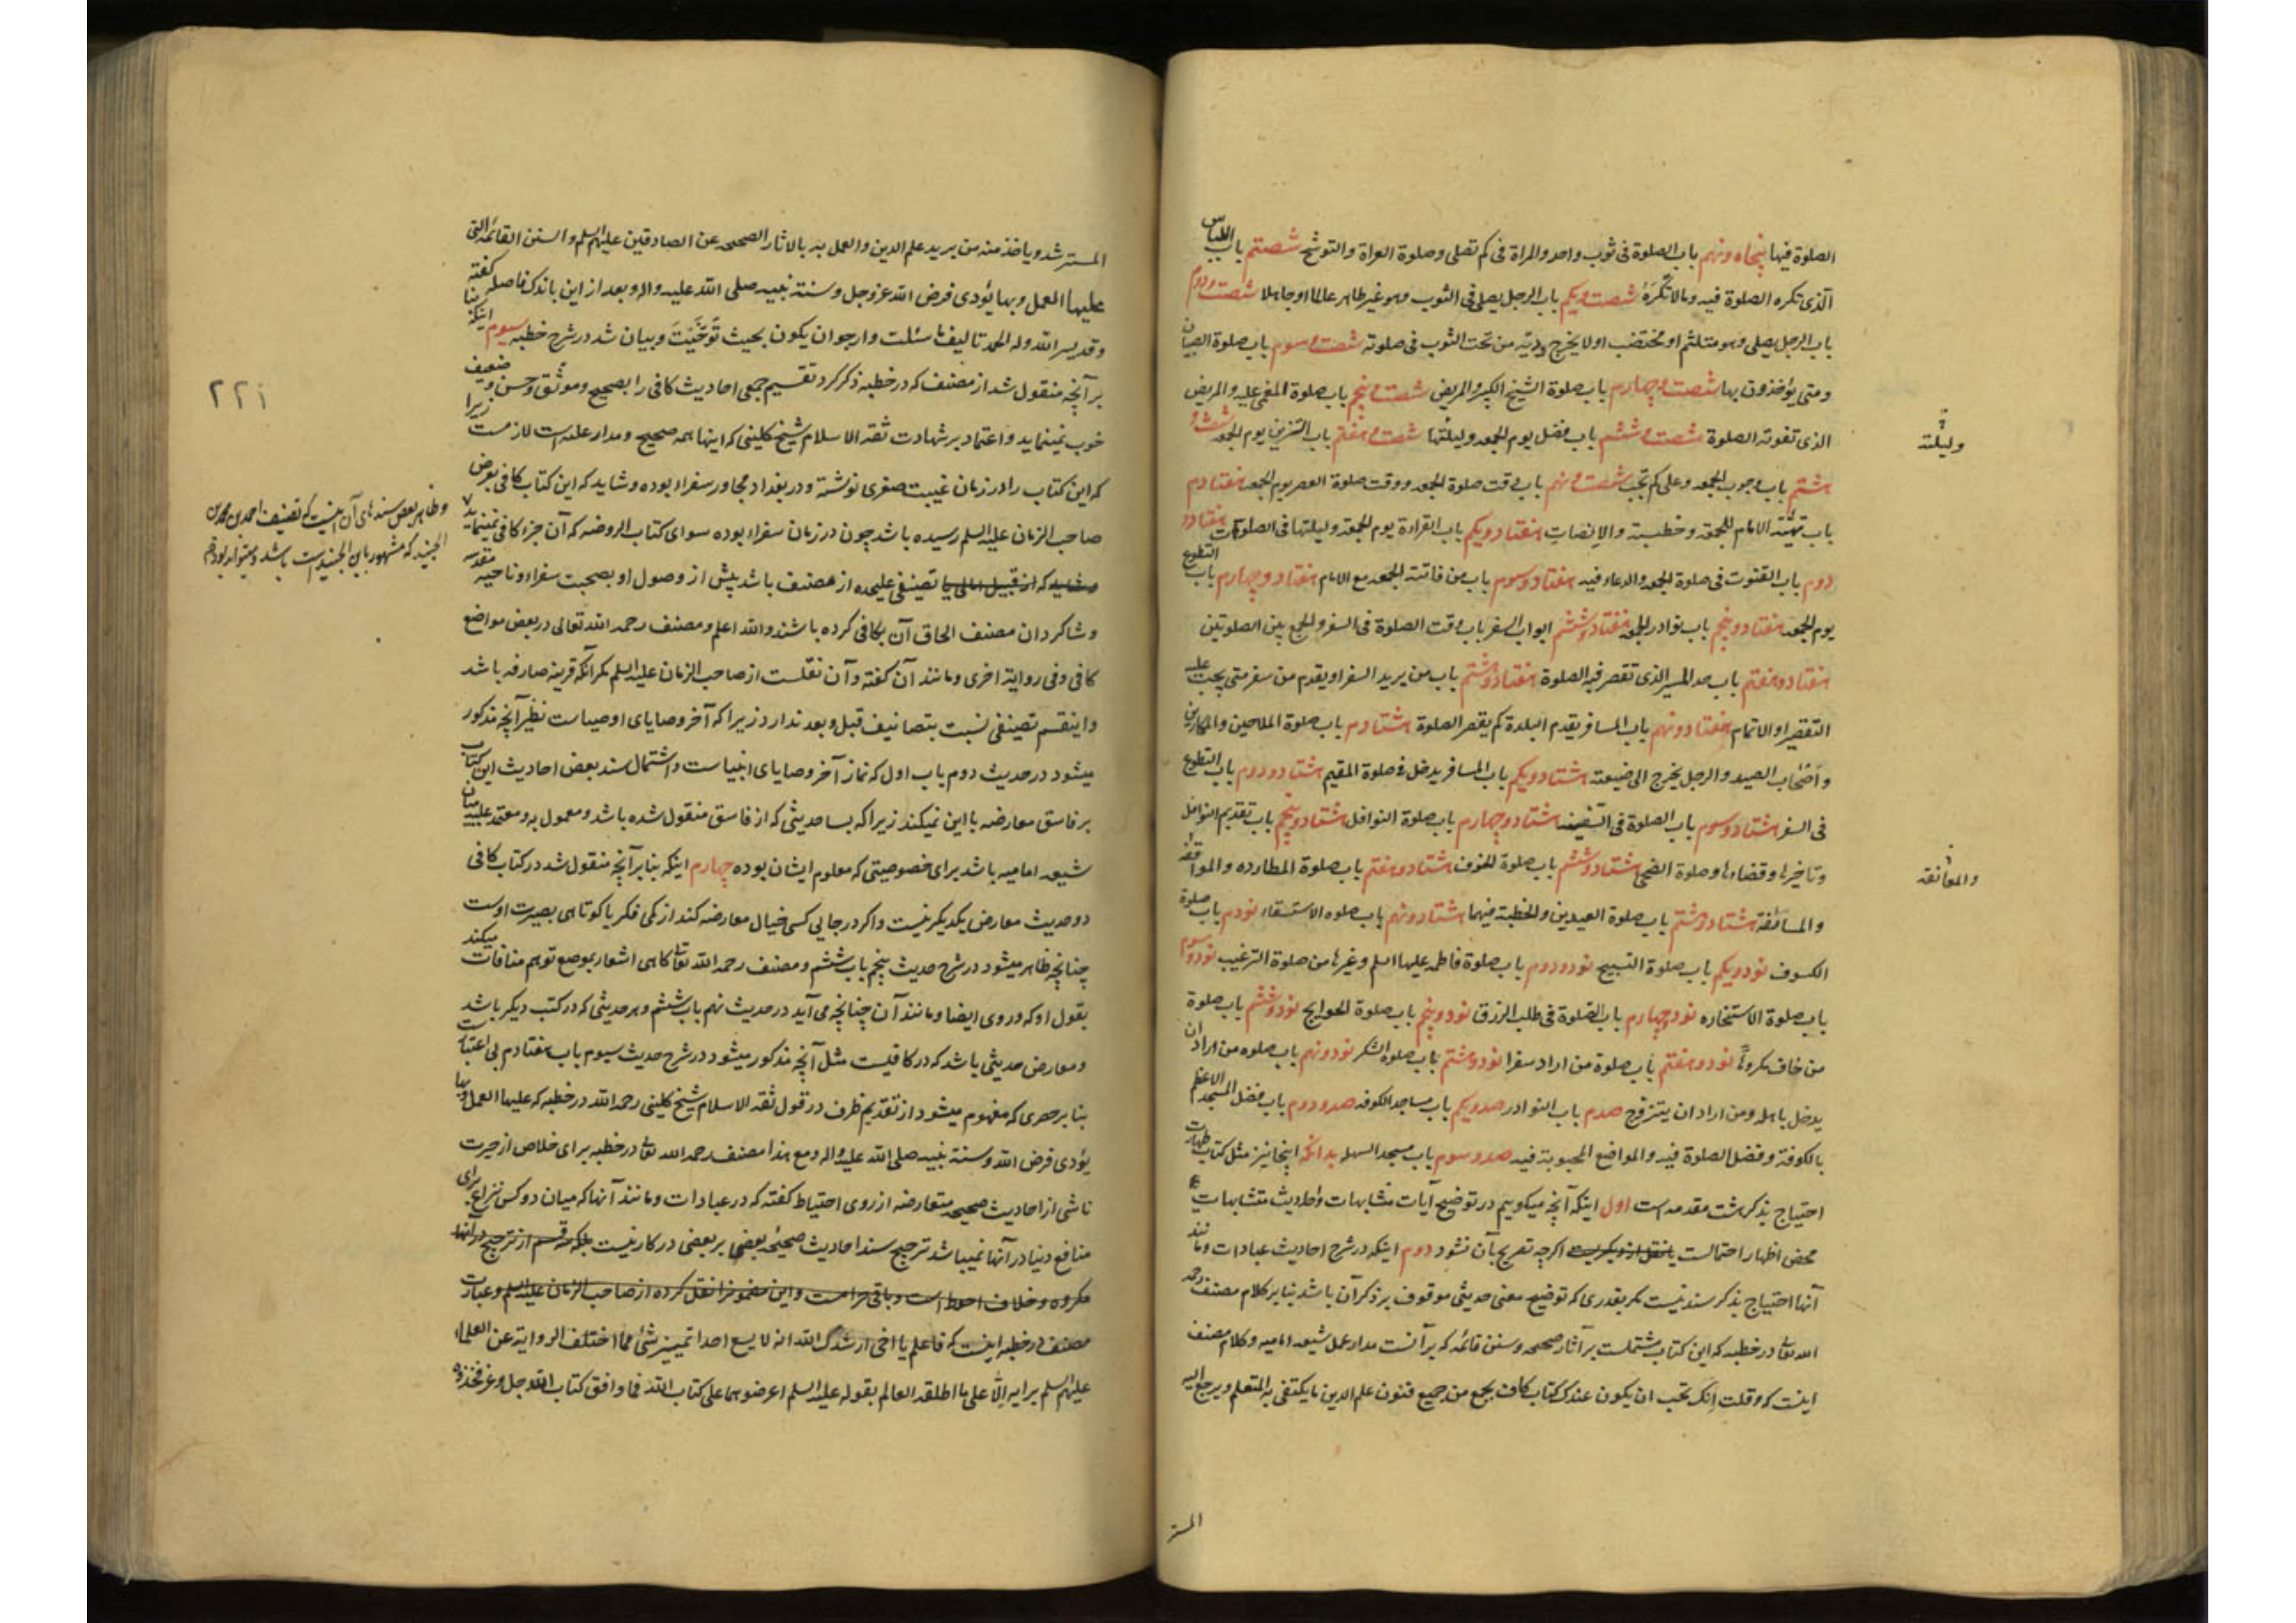 الصلوة فیها پنجاه ونهم باب الصلوة فی ثوب واحد والمراة فی کم تصلی وصلوة العراة والتوشح شصتم باب اللباس
الذی تکره الصلوة فیه ومالا تکره شصت ویکم باب الرجل یصلی فی الثوب وهو غیر طاهر عالما او جاهلا شصت ودوم
باب الرجل یصلی وهو متلثم او مختضب او لا یخرج یدیه من تحت الثوب فی صلوته شصت وسوم باب صلوة الصبیان
ومتی یؤخذون بها شصت وچهارم باب صلوة الشیخ الکبیر والمریض شصت وپنجم باب صلوة المغمی علیه والمریض
الذی تفوته الصلوة شصت وششم باب فضل یوم الجمعه ولیلتها شصت وهفتم باب التزین یوم الجمعه شصت و
ولیلته
هشتم باب وجوب الجمعه وعلی کم تجب شصت ونهم باب وقت صلوة الجمعه ووقت صلوة العصر یوم الجمعه هفتادم
باب تهیئة الامام للجمعه وخطبته والانصات هفتاد ویکم باب القراءة یوم الجمعه ولیلتها فی الصلوات هفتاد و
دوم باب القنوت فی صلوة الجمعه والدعاء فیه هفتاد وسوم باب من فاتته الجمعه مع الامام هفتاد وچهارم باب التطوع
یوم الجمعه هفتاد وپنجم باب نوادر الجمعه هفتاد وششم ابواب السفر باب وقت الصلوة فی السفر والجمع بین الصلوتین
هفتاد وهفتم باب حد المسیر الذی تقصر فیه الصلوة هفتاد وهشتم باب من یرید السفر او یقدم من سفر متی یجب علیه
التقصیر او الاتمام هفتاد ونهم باب المسافر یقدم البلدة کم یقصر الصلوة هشتادم باب صلوة الملاحین والمکارین
واصحاب الصید والرجل یخرج الی ضیعته هشتاد ویکم باب المسافر یدخل فی صلوة المقیم هشتاد ودوم باب التطوع
فی السفر هشتاد وسوم باب الصلوة فی السفینه هشتاد وچهارم باب صلوة النوافل هشتاد وپنجم باب تقدیم النوافل
وتاخیرها وقضاءها وصلوة الضحی هشتاد وششم باب صلوة الخوف هشتاد وهفتم باب صلوة المطارده والمواقفه
والموافقه
والمسائفة هشتاد وهشتم باب صلوة العیدین والخطبة فیهما هشتاد ونهم باب صلوه الاستسقاء نودم باب صلوة
الکسوف نود ویکم باب صلوة التسبیح نود ودوم باب صلوة فاطمه علیها السلم وغیرها من صلوة الترغیب نود وسوم
باب صلوة الاستخاره نود وچهارم باب الصلوة فی طلب الرزق نود وپنجم باب صلوة الحوایج نود وششم باب صلوة
من خاف مکروها نود وهفتم باب صلوة من اراد سفرا نود وهشتم باب صلوة الشکر نود ونهم باب صلوه من اراد ان
یدخل باهله ومن اراد ان یتزوج صدم باب النوادر صد ویکم باب مساجد الکوفه صد ودوم باب فضل المسجد الاعظم
بالکوفة وفضل الصلوة فیه والمواضع المحبوبة فیه صد وسوم باب مسجد السهله بدانکه اینجا نیز مثل کتاب طهارت
احتیاج بذکر هشت مقدمه است اول اینکه آنچه میکوییم در توضیح آیات متشابهات واحادیث متشابهات
محض اظهار احتمالست اکرچه تصریح بآن نشود دوم اینکه در شرح احادیث عبادات ومانند
آنها احتیاج بذکر سند نیست مکر بقدری که توضیح معنی حدیثی موقوف بر ذکر آن باشد بنا بر کلام مصنف رحمه
الله تعالی در خطبه که این کتاب مشتملست بر آثار صحیحه وسنن قائمه که بر آنست مدار عمل شیعه امامیه وکلام مصنف
اینست که وقلت انک تحب ان یکون عندک کتاب کاف یجمع من جمیع فنون علم الدین ما یکتفی به المتعلم ویرجع الیه
المستر
المسترشد ویاخذ منه من یرید علم الدین والعمل به بالاثار الصحیحه عن الصادقین علیهم السلم والسنن القائمة التی
علیها العمل وبها یؤدی فرض الله عز وجل وسنة نبیه صلی الله علیه واله وبعد از این باندک فاصله کفته
وقد یسر الله وله الحمد تالیف ما سئلت وارجو ان یکون بحیث توخیت وبیان شد در شرح خطبه سیوم اینکه بنا
بر آنچه منقول شد از مصنف که در خطبه ذکر کرد تقسیم جمعی احادیث کافی را بصحیح وموثق وحسن وضعیف
۲۲۱
خوب نمینماید واعتماد بر شهادت ثقة الاسلام شیخ کلینی که اینها همه صحیح ومدار علیه است لازمست زیرا
که این کتاب را در زمان غیبت صغری نوشته ودر بغداد مجاور سفراء بوده وشاید که این کتاب کافی بعرض
صاحب الزمان علیه السلم رسیده باشد چون در زمان سفراء بوده سوای کتاب الروضه که آن جزء کافی نمینماید
وظاهر بعض سندهای آن اینست که تصنیف احمد بن محمد بن
الجنید که مشهور بابن الجنید است باشد
تصنیفی علیحده از مصنف باشد پیش از وصول او بصحبت سفراء وناحیه مقدسه
وشاکردان مصنف الحاق آن بکافی کرده باشند والله اعلم ومصنف رحمه الله تعالی در بعض مواضع
کافی وفی روایة اخری ومانند آن کفته وآن نقلست از صاحب الزمان علیه السلم مکر آنکه قرینه صارفه باشد
واینقسم تصنیفی نسبت بتصانیف قبل وبعد ندارد زیرا که آخر وصایای اوصیاست نظیر آنچه مذکور
میشود در حدیث دوم باب اول که نماز آخر وصایای انبیاست واشتمال سند بعض احادیث این کتاب
بر فاسق معارضه با این نمیکند زیرا که بسا حدیثی که از فاسق منقول شده باشد ومعمول به ومعتمد علیه میان
شیعه امامیه باشد برای خصوصیتی که معلوم ایشان بوده چهارم اینکه بنا بر آنچه منقول شد در کتاب کافی
دو حدیث معارض یکدیکر نیست واکر در جایی کسی خیال معارضه کند از کمی فکر یا کوتاهی بصیرت اوست
چنانچه ظاهر میشود در شرح حدیث پنجم باب ششم ومصنف رحمه الله تعالی کاهی اشعار بموضع توهم منافات میکند
بقول او که وروی ایضا ومانند آن چنانچه می آید در حدیث نهم باب ششم وهر حدیثی که در کتب دیکر باشد
ومعارض حدیثی باشد که در کافیست مثل آنچه مذکور میشود در شرح حدیث سیوم باب هفتادم بی اعتبار است
بنا بر حصری که مفهوم میشود از تقدیم ظرف در قول ثقة الاسلام شیخ کلینی رحمه الله در خطبه که علیها العمل وبها
یؤدی فرض الله وسنة نبیه صلی الله علیه واله ومع هذا مصنف رحمه الله تعالی در خطبه برای خلاص از حیرت
ناشی از احادیث صحیحه متعارضه از روی احتیاط کفته که در عبادات ومانند آنها که میان دو کس نزاع برای
منافع دنیا در آنها نمیباشد ترجیح سند احادیث صحیحه بعضی بر بعضی در کار نیست بلکه قسم از ترجیح در آنها
مکروه وخلاف احوط است وباقی حرامست واین مضمون را نقل کرده از صاحب الزمان علیه السلم وعبارت
مصنف در خطبه اینست که فاعلم یا اخی ارشدک الله انه لا یسع احدا تمییز شئ مما اختلف الروایة عن العلماء
علیهم السلم برایه الا علی ما اطلقه العالم بقوله علیه السلم اعرضوهما علی کتاب الله فما وافق کتاب الله جل وعز فخذوه